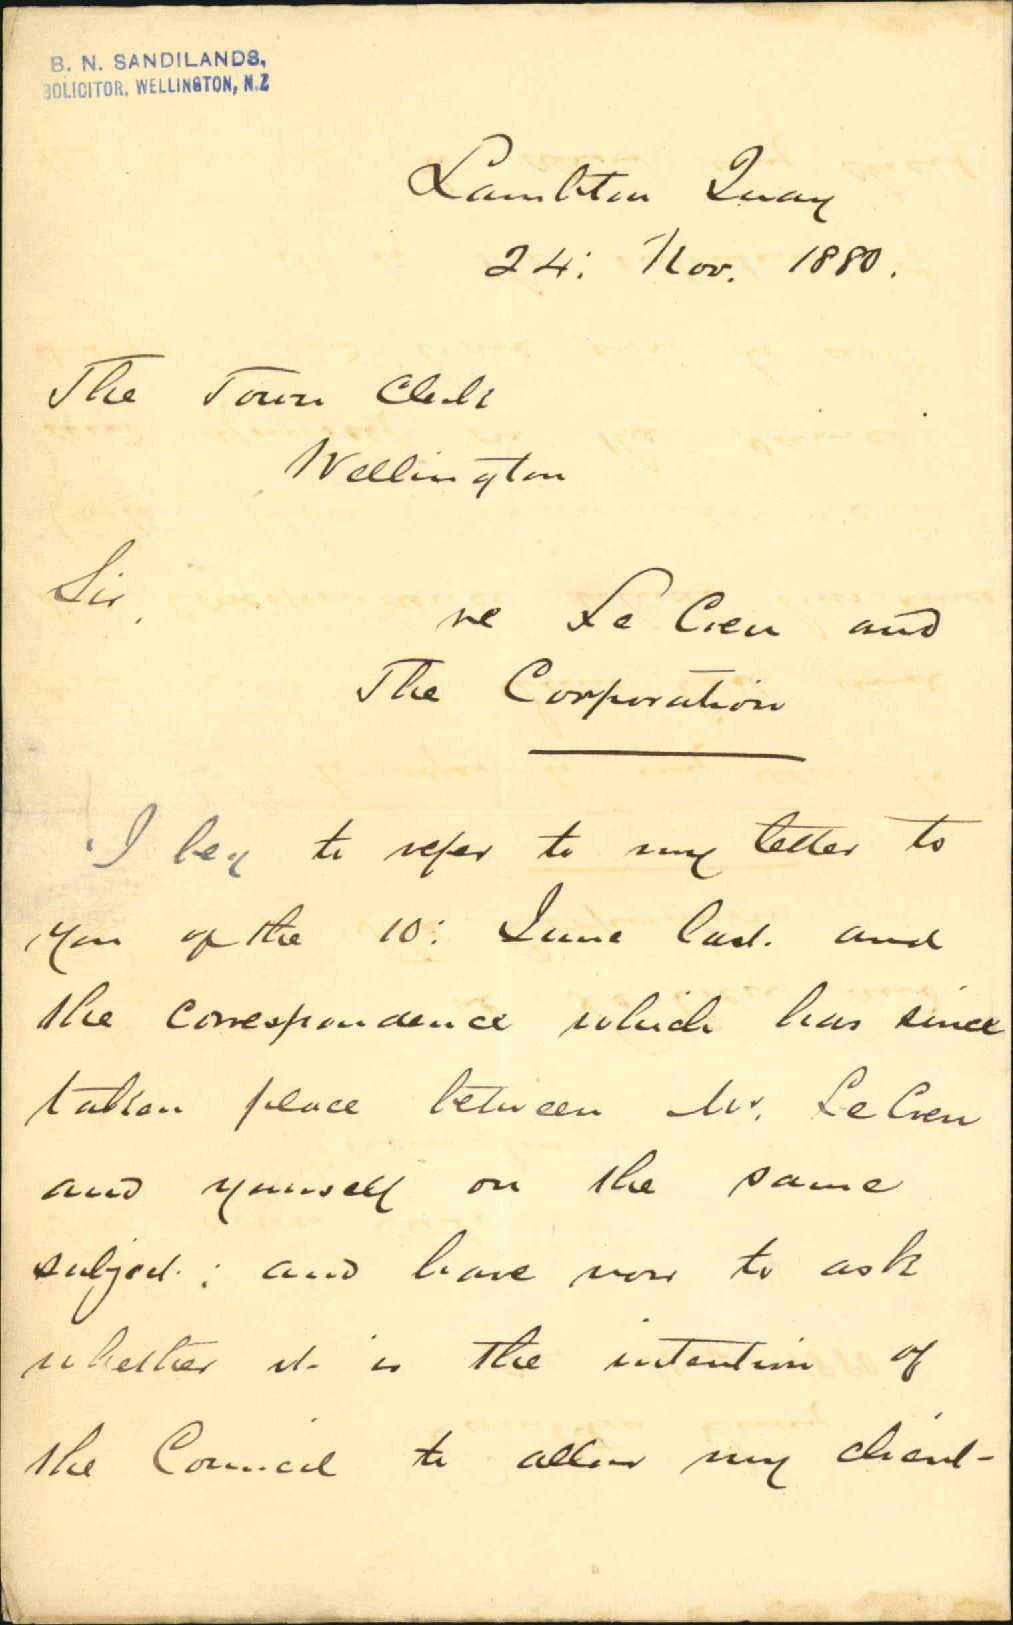 B. N. SANDILANDS,
SOLICITOR. WELLINGTON, N.Z
Lambton Quay
24: Nov. 1880.
The Town Clerk
Wellington
Sir,
re Le Cren and
The Corporation
I beg to refer to my letter to
you of the 10: June last. and
the correspondence which has since
taken place between Mr. Le Cren
and yourself on the same
subject.; and have now to ask
whether it is the intention of
the Council to allow my client-